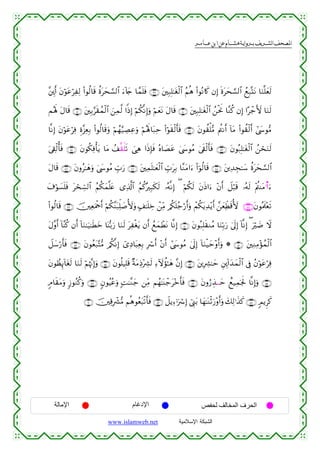 المصحف الشريف برواية هشام عن ابن عامر
لَعَلَّنَا نَتَّبِعُ السَّحَرَةَ إِن كَانُوا هُمُ الْغَالِبِينَ فَلَمَّا جَاءَ السَّحَرَةُ قَالُوا لِفِرْعَوْنَ أَئِنَّ
لَنَا لَأَجْرًا إِن كُنَّا نَحْنُ الْغَالِبِينَ قَالَ نَعَمْ وَإِنَّكُمْ إِذًا لَّمِنَ الْمُقَرَّبِينَ قَالَ لَهُم
مُّوسَى أَلْقُوا مَا أَنتُم مُّلْقُونَ فَأَلْقَوْا حِبَالَهُمْ وَعِصِيَّهُمْ وَقَالُوا بِعِزَّةِ فِرْعَوْنَ إِنَّا
لَنَحْنُ الْغَالِبُونَ فَأَلْقَى مُوسَى عَصَاهُ فَإِذَا هِيَ تَلَقَّفُ مَا يَأْفِكُونَ فَأُلْقِيَ
السَّحَرَةُ سَاجِدِينَ قَالُوا ءَامَنَّا بِرَبِّ الْعَالَمِينَ رَبِّ مُوسَى وَهَارُونَ قَالَ
ءَأَامَنتُمْ لَهُ قَبْلَ أَنْ ءَاذَنَ لَكُمْ إِنَّهُ لَكَبِيرُكُمُ الَّذِي عَلَّمَكُمُ السِّحْرَ فَلَسَوْفَ
تَعْلَمُونَ لَأُقَطِّعَنَّ أَيْدِيَكُمْ وَأَرْجُلَكُم مِّنْ خِلَافٍ وَلَأُصَلِّبَنَّكُمْ أَجْمَعِينَ قَالُوا
لَا ضَيْرَ إِنَّا إِلَى رَبِّنَا مُنقَلِبُونَ إِنَّا نَطْمَعُ أَن يَغْفِرَ لَنَا رَبُّنَا خَطَايَانَا أَن كُنَّا أَوَّلَ
الْمُؤْمِنِينَ وَأَوْحَيْنَا إِلَى مُوسَى أَنْ أَسْرِ بِعِبَادِي إِنَّكُم مُّتَّبَعُونَ فَأَرْسَلَ
فِرْعَوْنُ فِي الْمَدَائِنِ حَاشِرِينَ إِنَّ هَؤُلَاءِ لَشِرْذِمَةٌ قَلِيلُونَ وَإِنَّهُمْ لَنَا لَغَائِظُونَ
وَإِنَّا لَجَمِيعٌ حَذِرُونَ فَأَخْرَجْنَاهُم مِّن جَنَّاتٍ وَعُيُونٍ وَكُنُوزٍ وَمَقَامٍ
كَرِيمٍ كَذَلِكَ وَأَوْرَثْنَاهَا بَنِي إِسْرَائِيلَ فَأَتْبَعُوهُم مُّشْرِقِينَ
الحرف المخالف لحفص الإدغام الإمالة
www.islamweb.net الشبكة الإسلامية